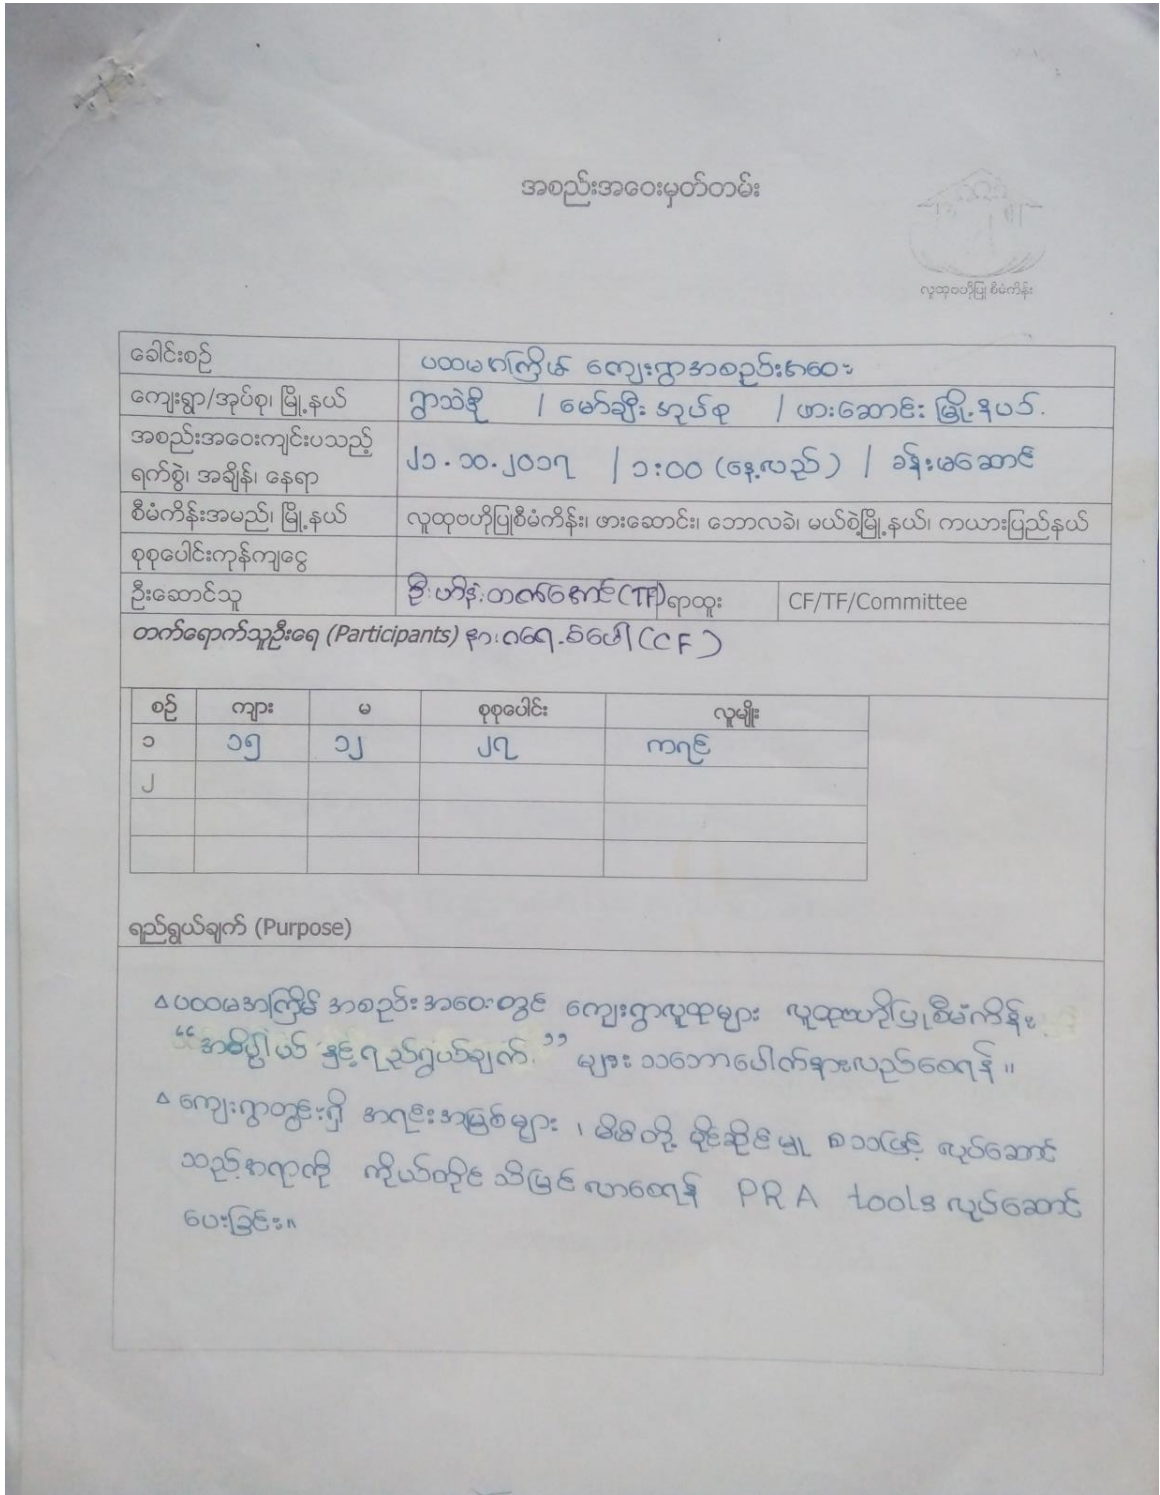 အစည်းအဝေးမှတ်တမ်း
လူထုဗဟိုပြုစီမံကိန်း
ခေါင်းစဉ် ပထမအကြိမ် ကျေးရွာအစည်းအဝေး
ကျေးရွာ/အုပ်စု၊ မြို့နယ် ရွာသစ် / မော်ချီး အုပ်စု / ဖားဆောင်း မြို့နယ်.
အစည်းအဝေးကျင်းပသည့်
ရက်စွဲ၊ အချိန်၊ နေရာ ၂၁.၁၀.၂၀၁၇ / ၁:၀၀ (နေ့လည်) / ခန်းမဆောင်
စီမံကိန်းအမည်၊ မြို့နယ် လူထုဗဟိုပြုစီမံကိန်း၊ ဖားဆောင်း၊ ဘောလခဲ၊ မယ်စဲ့မြို့နယ်၊ ကယားပြည်နယ်
စုစုပေါင်းကုန်ကျငွေ
ဦးဆောင်သူ (TF) ရာထူး CF/TF/Committee
တက်ရောက်သူဦးရေ (Participants) (CF)
စဉ် ကျား မ စုစုပေါင်း လူမျိုး
၁ ၁၅ ၁၂ ၂၇ ကရင်
၂
ရည်ရွယ်ချက် (Purpose)
∆ ပထမအကြိမ် အစည်းအဝေးတွင် ကျေးရွာလူထုများ လူထုဗဟိုပြုစီမံကိန်း
“အဓိပ္ပါယ် နှင့် ရည်ရွယ်ချက်” များ သဘောပေါက်နားလည်စေရန်။
∆ ကျေးရွာတွင်းရှိ အရင်းအမြစ်များ ၊ မိမိတို့ ပိုင်ဆိုင်မှု လုပ်ဆောင်
သည့်အရာကို ကိုယ်တိုင် သိမြင်လာစေရန် PRA tools လုပ်ဆောင်
ပေးခြင်း။